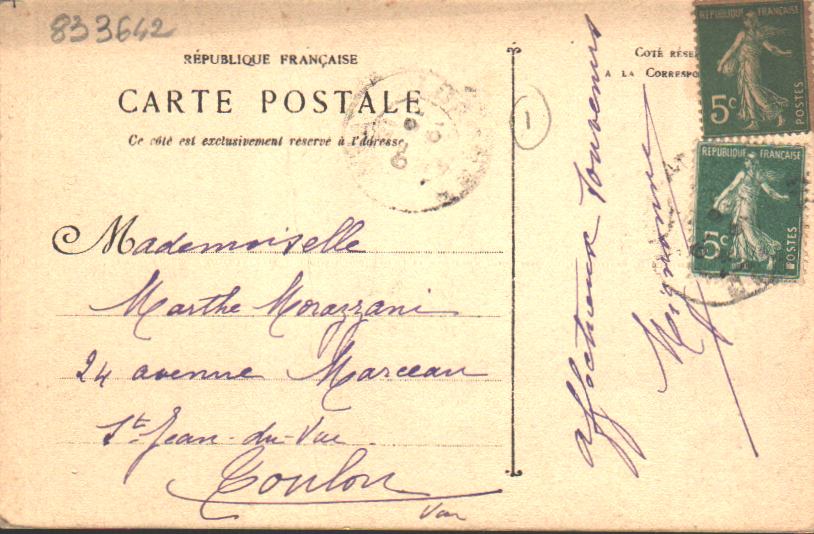 833642
RÉPUBLIQUE FRANÇAISE
CARTE POSTALE
Ce côté est exclusivement réservé à l'adresse
Mademoiselle
Marthe Morazzani
24 avenue Marceau
St Jean-du-Var
Toulon
Var
1
COTÉ RÉSE
A LA CORRESPO
affectueux souvenirs
Mignonne
REPUBLIQUE FRANÇAISE
5c
POSTES
REPUBLIQUE FRANÇAISE
5c
POSTES